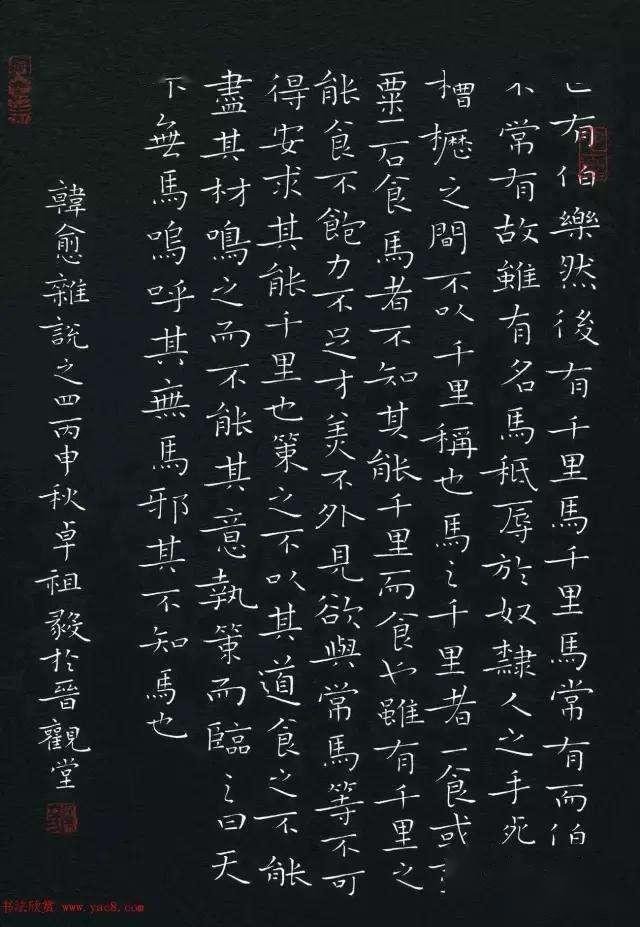 有伯樂然後有千里馬千里馬常有而伯
不常有故雖有名馬秖辱於奴隸人之手死
槽櫪之間不以千里稱也馬之千里者一食或
粟一石食馬者不知其能千里而食也雖有千里之
能食不飽力不足才美不外見欲與常馬等不可
得安求其能千里也策之不以其道食之不能
盡其材鳴之而不能其意執策而臨之曰天
下無馬嗚呼其無馬邪其不知馬也
韓愈雜說之四丙申秋卓祖毅於晉觀堂
书法欣赏 www.yac8.com